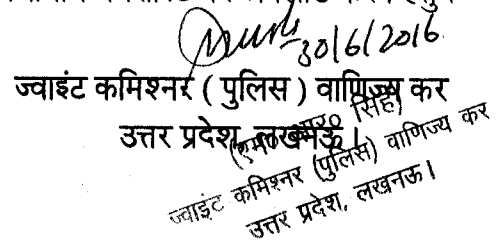 30/6/2016
ज्वाइंट कमिश्नर ( पुलिस ) वाणिज्य कर
उत्तर प्रदेश, लखनऊ।
सिंह)
ज्वाइंट कमिश्नर (पुलिस) वाणिज्य कर
उत्तर प्रदेश, लखनऊ।